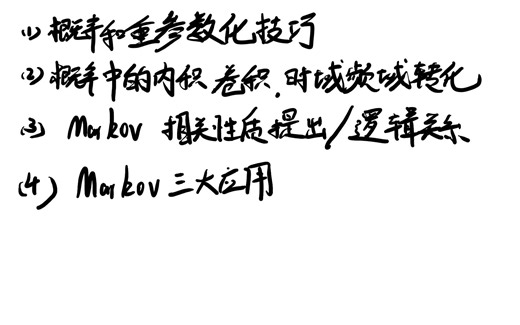 (1) 概率和重参数化技巧
(2) 概率中的内积 卷积,时域频域转化
(3) Markov 相关性质提出/逻辑关系
(4) Markov 三大应用